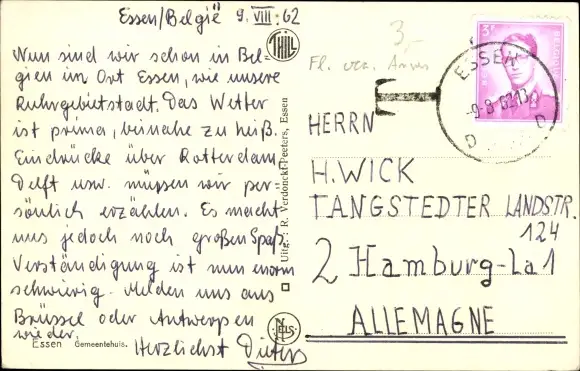 Essen/België 9. VIII. 62
Nun sind wir schon in Bel-
gien im Ort Essen, wie unsere
Ruhrgebietstadt. Das Wetter
ist prima, beinahe zu heiß.
Eindrücke über Rotterdam,
Delft usw. müssen wir per-
sönlich erzählen. Es macht
uns jedoch noch großen Spaß.
Verständigung ist nun enorm
schwierig. Melden uns aus
Brüssel oder Antwerpen
wieder.
Herzlichst Dieter
Essen Gemeentehuis.
THILL
Uitg.: R. Verdonckt-Peeters, Essen
NELS
3,-
T
3F
ESSEN
-9-8-62 13
D D
HERRN
H. WICK
TANGSTEDTER LANDSTR.
124
2 Hamburg-La 1
ALLEMAGNE